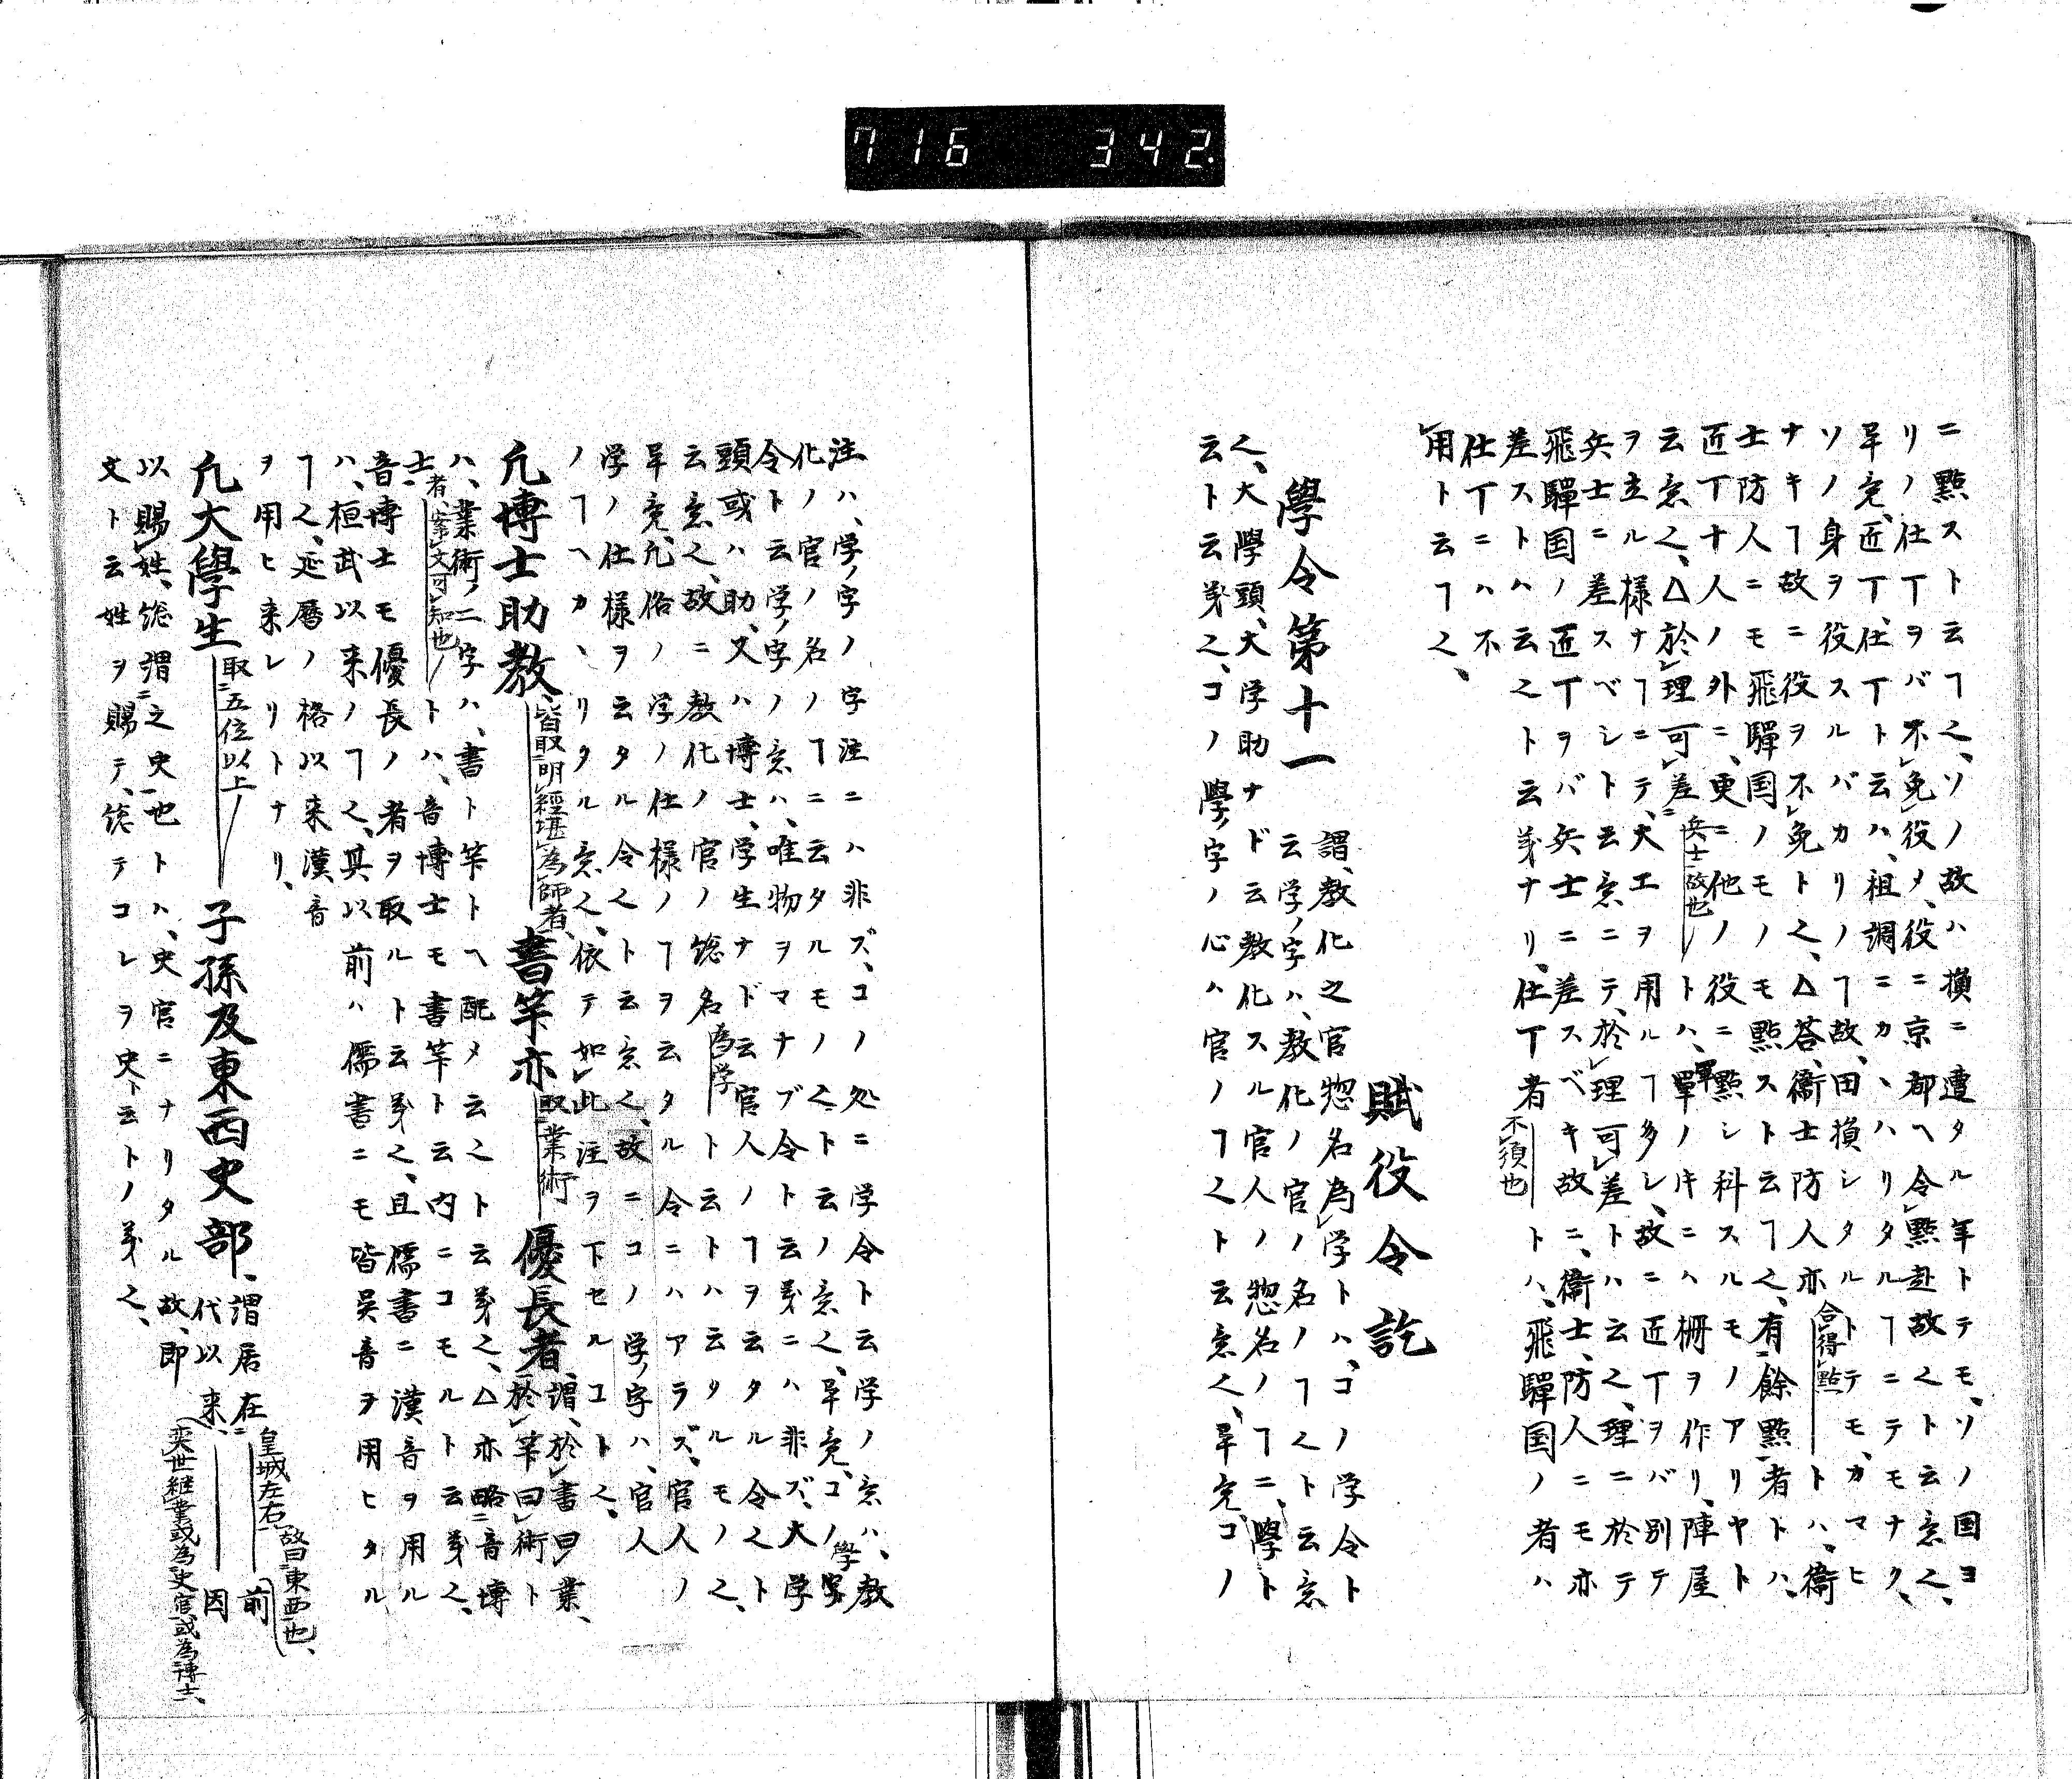 716 342.
ニ點スト云ヿ之、ソノ故ハ損ニ遭タル年トテモ、ソノ国ヨ
リノ仕丁ヲバ不免役メ、役ニ京都ヘ令點赴故之ト云意之、
畢竟、匠丁、仕丁ト云ハ、祖調ニカヽハリタルヿニテモナク、
ソノ身ヲ役スルバカリノヿ故、田損シタルトテモ、カマヒ
ナキヿ故ニ役ヲ不免ト之、△荅、衞士防人亦合得點トハ、衞
士防人ニモ飛驒国ノモノモ點スト云ヿ之、有餘點者トハ、
匠丁十人ノ外ニ、更ニ他ノ役ニ點シ科スルモノアリヤト
云意之、△於理可差兵士故也トハ、軍ノキニハ柵ヲ作リ、陣屋
ヲ立ル様ナヿニテ、大工ヲ用ルヿ多シ、故ニ匠丁ヲバ別テ
兵士ニ差スベシト云意ニテ、於理可差トハ云之、理ニ於テ
飛驒国ノ匠丁ヲバ兵士ニ差スベキ故ニ、衞士、防人ニモ亦
差ストハ云之ト云義ナリ、仕丁者不須也トハ、飛驒国ノ者ハ
仕丁ニハ不
用ト云ヿ之、
賦役令訖
學令第十一
謂、教化之官惣名為学トハ、コノ学令ト
云学ノ字ハ、教化ノ官ノ名ノヿ之ト云意
之、大學頭、大学助ナド云教化スル官人ノ惣名ノヿニ、學ト
云ト云義之、コノ學ノ字ノ心ハ官ノヿ之ト云意之、畢竟、コノ
注ハ、学ノ字ノ字注ニハ非ズ、コノ処ニ学令ト云学ノ意ハ、教
化ノ官ノ名ノヿニ云タルモノ之ト云ノ意之、畢竟、コノ學字
令ト云学ノ字ノ意ハ、唯物ヲマナブ令ト云義ニハ非ズ、大学
頭或ハ助、又ハ博士、学生ナド云官人ノヿヲ云タル令之ト
云意之、故ニ教化ノ官ノ惣名為学ト云トハ云タルモノ之、
畢竟、凢俗ノ学ノ仕様ノヿヲ云タル令ニハアラズ、官人ノ
学ノ仕様ヲ云タル令之ト云意之、故ニコノ学ノ字ハ、官人
ノヿヘカヽリタル意之、依テ如此注ヲ下セルコト之、
凢博士助教、皆取明經堪為師者、書筭亦取業術優長者、謂、於書曰業、
於筭曰術ト
ハ、業術ノ二字ハ、書ト筭トヘ配メ云之ト云義之、△亦略音博
士者、案文可知也ノトハ、音博士モ書筭ト云内ニコモルト云義之、
音博士モ優長ノ者ヲ取ルト云義之、且儒書ニ漢音ヲ用ル
ハ、桓武以来ノヿ之、其以前ハ儒書ニモ皆吴音ヲ用ヒタル
ヿ之、延暦ノ格以来漢音
ヲ用ヒ来レリトナリ、
凢大學生取五位以上子孫及東西史部、謂居在皇城左右故曰東西也、前
代以来奕世継業或為史官或為博士、因
以賜姓、惣謂之史也トハ、史官ニナリタル故、即
文ト云姓ヲ賜テ、惣テコレヲ史ト云トノ義之、